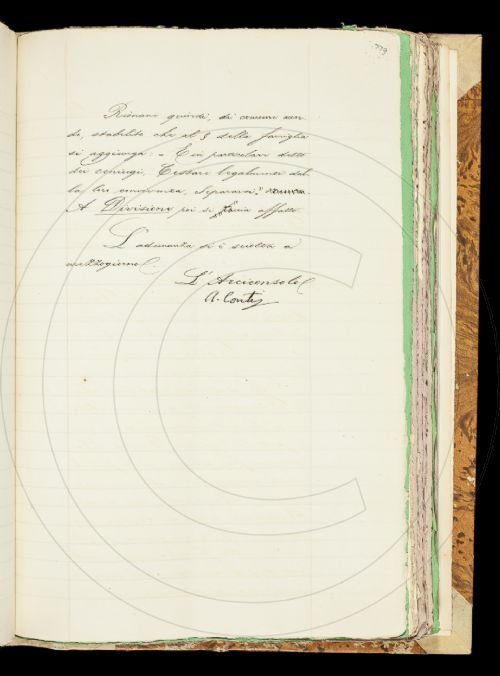 779
Rimane quindi, di comun accor-
do, stabilito che al § della famiglia
si aggiunga: = E in particolare detto
dei coniugi, Cessare legalmente dal-
la loro convivenza, Separarsi.
A Divisione poi si affatto.
L'adunanza si è sciolta a
mezzogiorno.
L'Arciconsolo
A. Conti